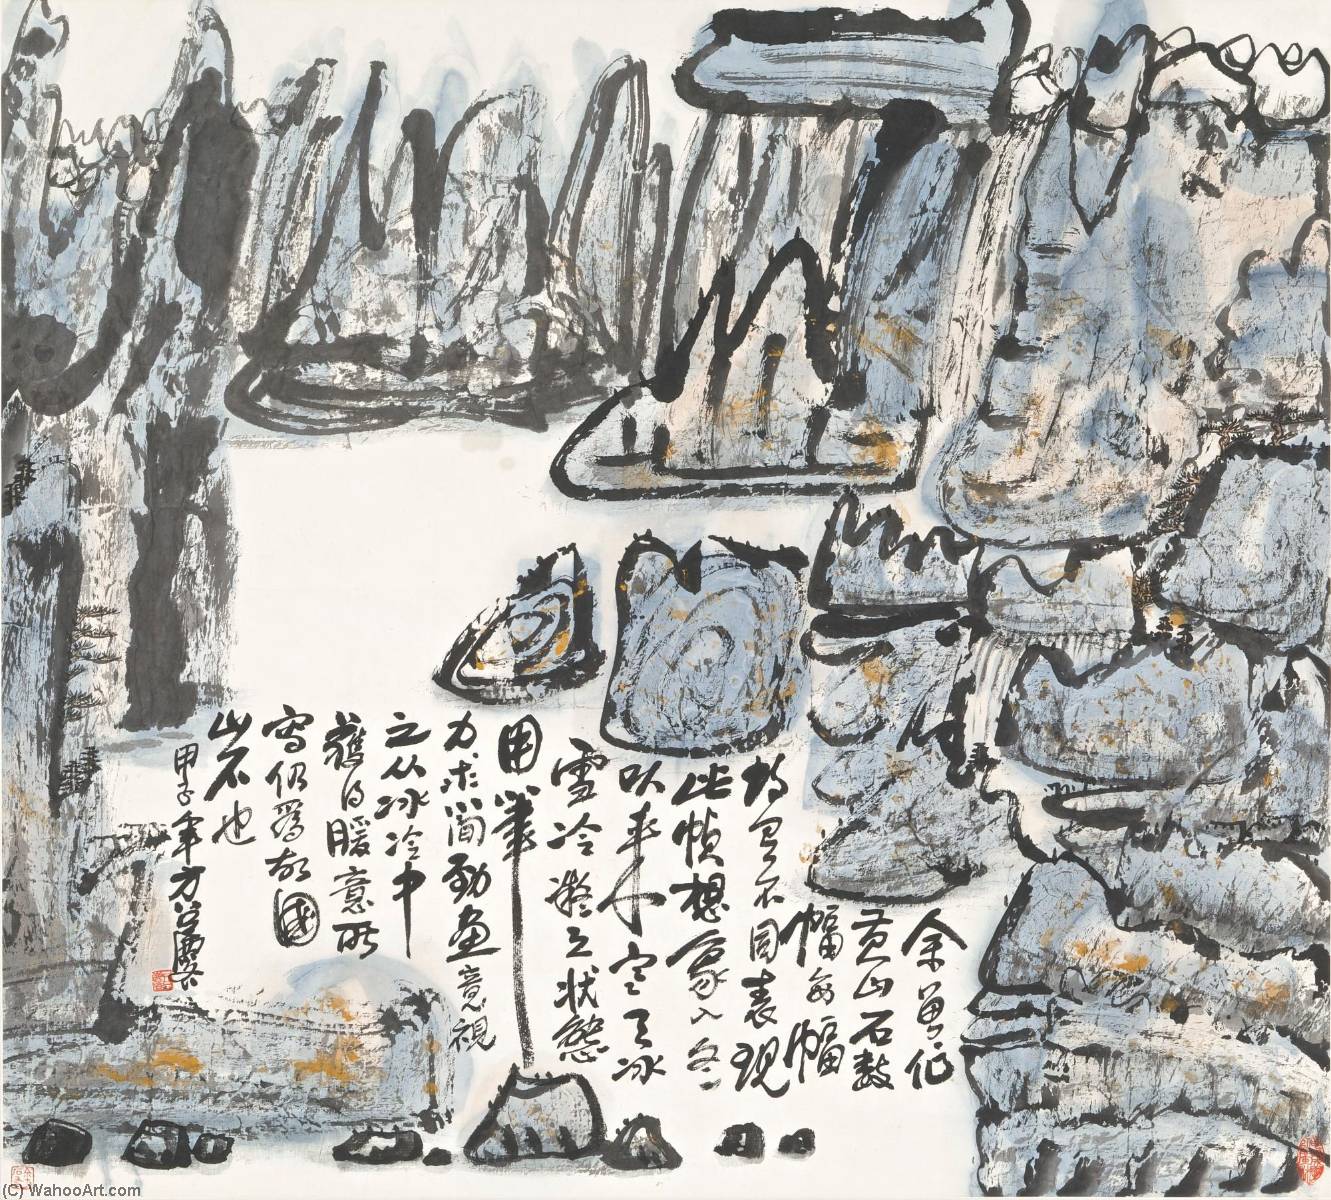 余曾作
黄山石数
幅每幅
均有不同表现
此帧想象入冬
以来小寒天冰
雪冷凝之状态
用笔
力求简劲画意视
之从冰冷中
获得暖意所
写仍为故国
山石也
甲子年方召麐
(C) WahooArt.com